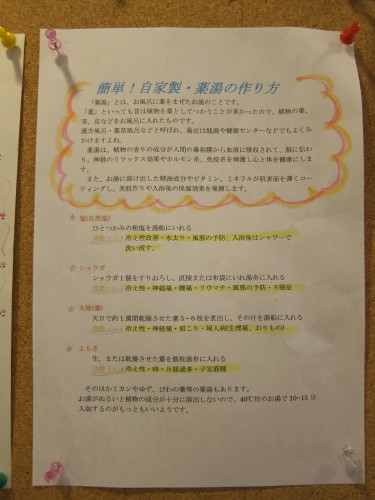 簡単！自家製・薬湯の作り方
「薬湯」とは、お風呂に薬をまぜたお湯のことです。
「薬」といっても昔は植物を薬としてつかうことが多かったので、植物の葉、
実、皮などをお風呂に入れたものです。
漢方風呂・薬草風呂などと呼ばれ、最近は銭湯や健康センターなどでもよくみ
かけますよね。
薬湯は、植物の香りの成分が人間の鼻粘膜から血液に吸収されて、脳に伝わ
り、神経のリラックス効果やホルモン系、免疫系を刺激し心と体を健康にしま
す。
また、お湯に溶け出した精油成分やビタミン、ミネラルが肌表面を薄くコー
ティングし、美肌作りや入浴後の保温効果を発揮します。
塩(自然塩)
ひとつかみの粗塩を湯船にいれる
冷え性改善・水太り・風邪の予防、入浴後はシャワーで
洗い流す。
ショウガ
ショウガ１個をすりおろし、直接または布袋にいれ湯舟に入れる
冷え性・神経痛・腰痛・リウマチ・風邪の予防・不眠症
大根(葉)
天日で約１週間乾燥させた葉5~6枚を煮出し、その汁を湯船に入れる
冷え性・神経痛・肩こり・婦人病(生理痛、おりもの)
よもぎ
生、または乾燥させた葉を数枚湯舟に入れる
冷え性・痔・月経過多・子宮筋腫
そのほかミカンやゆず、びわの葉等の薬湯もあります。
お湯がぬるいと植物の成分が十分に溶出しないので、40℃位のお湯で10~15分
入浴するのがもっともいいようです。